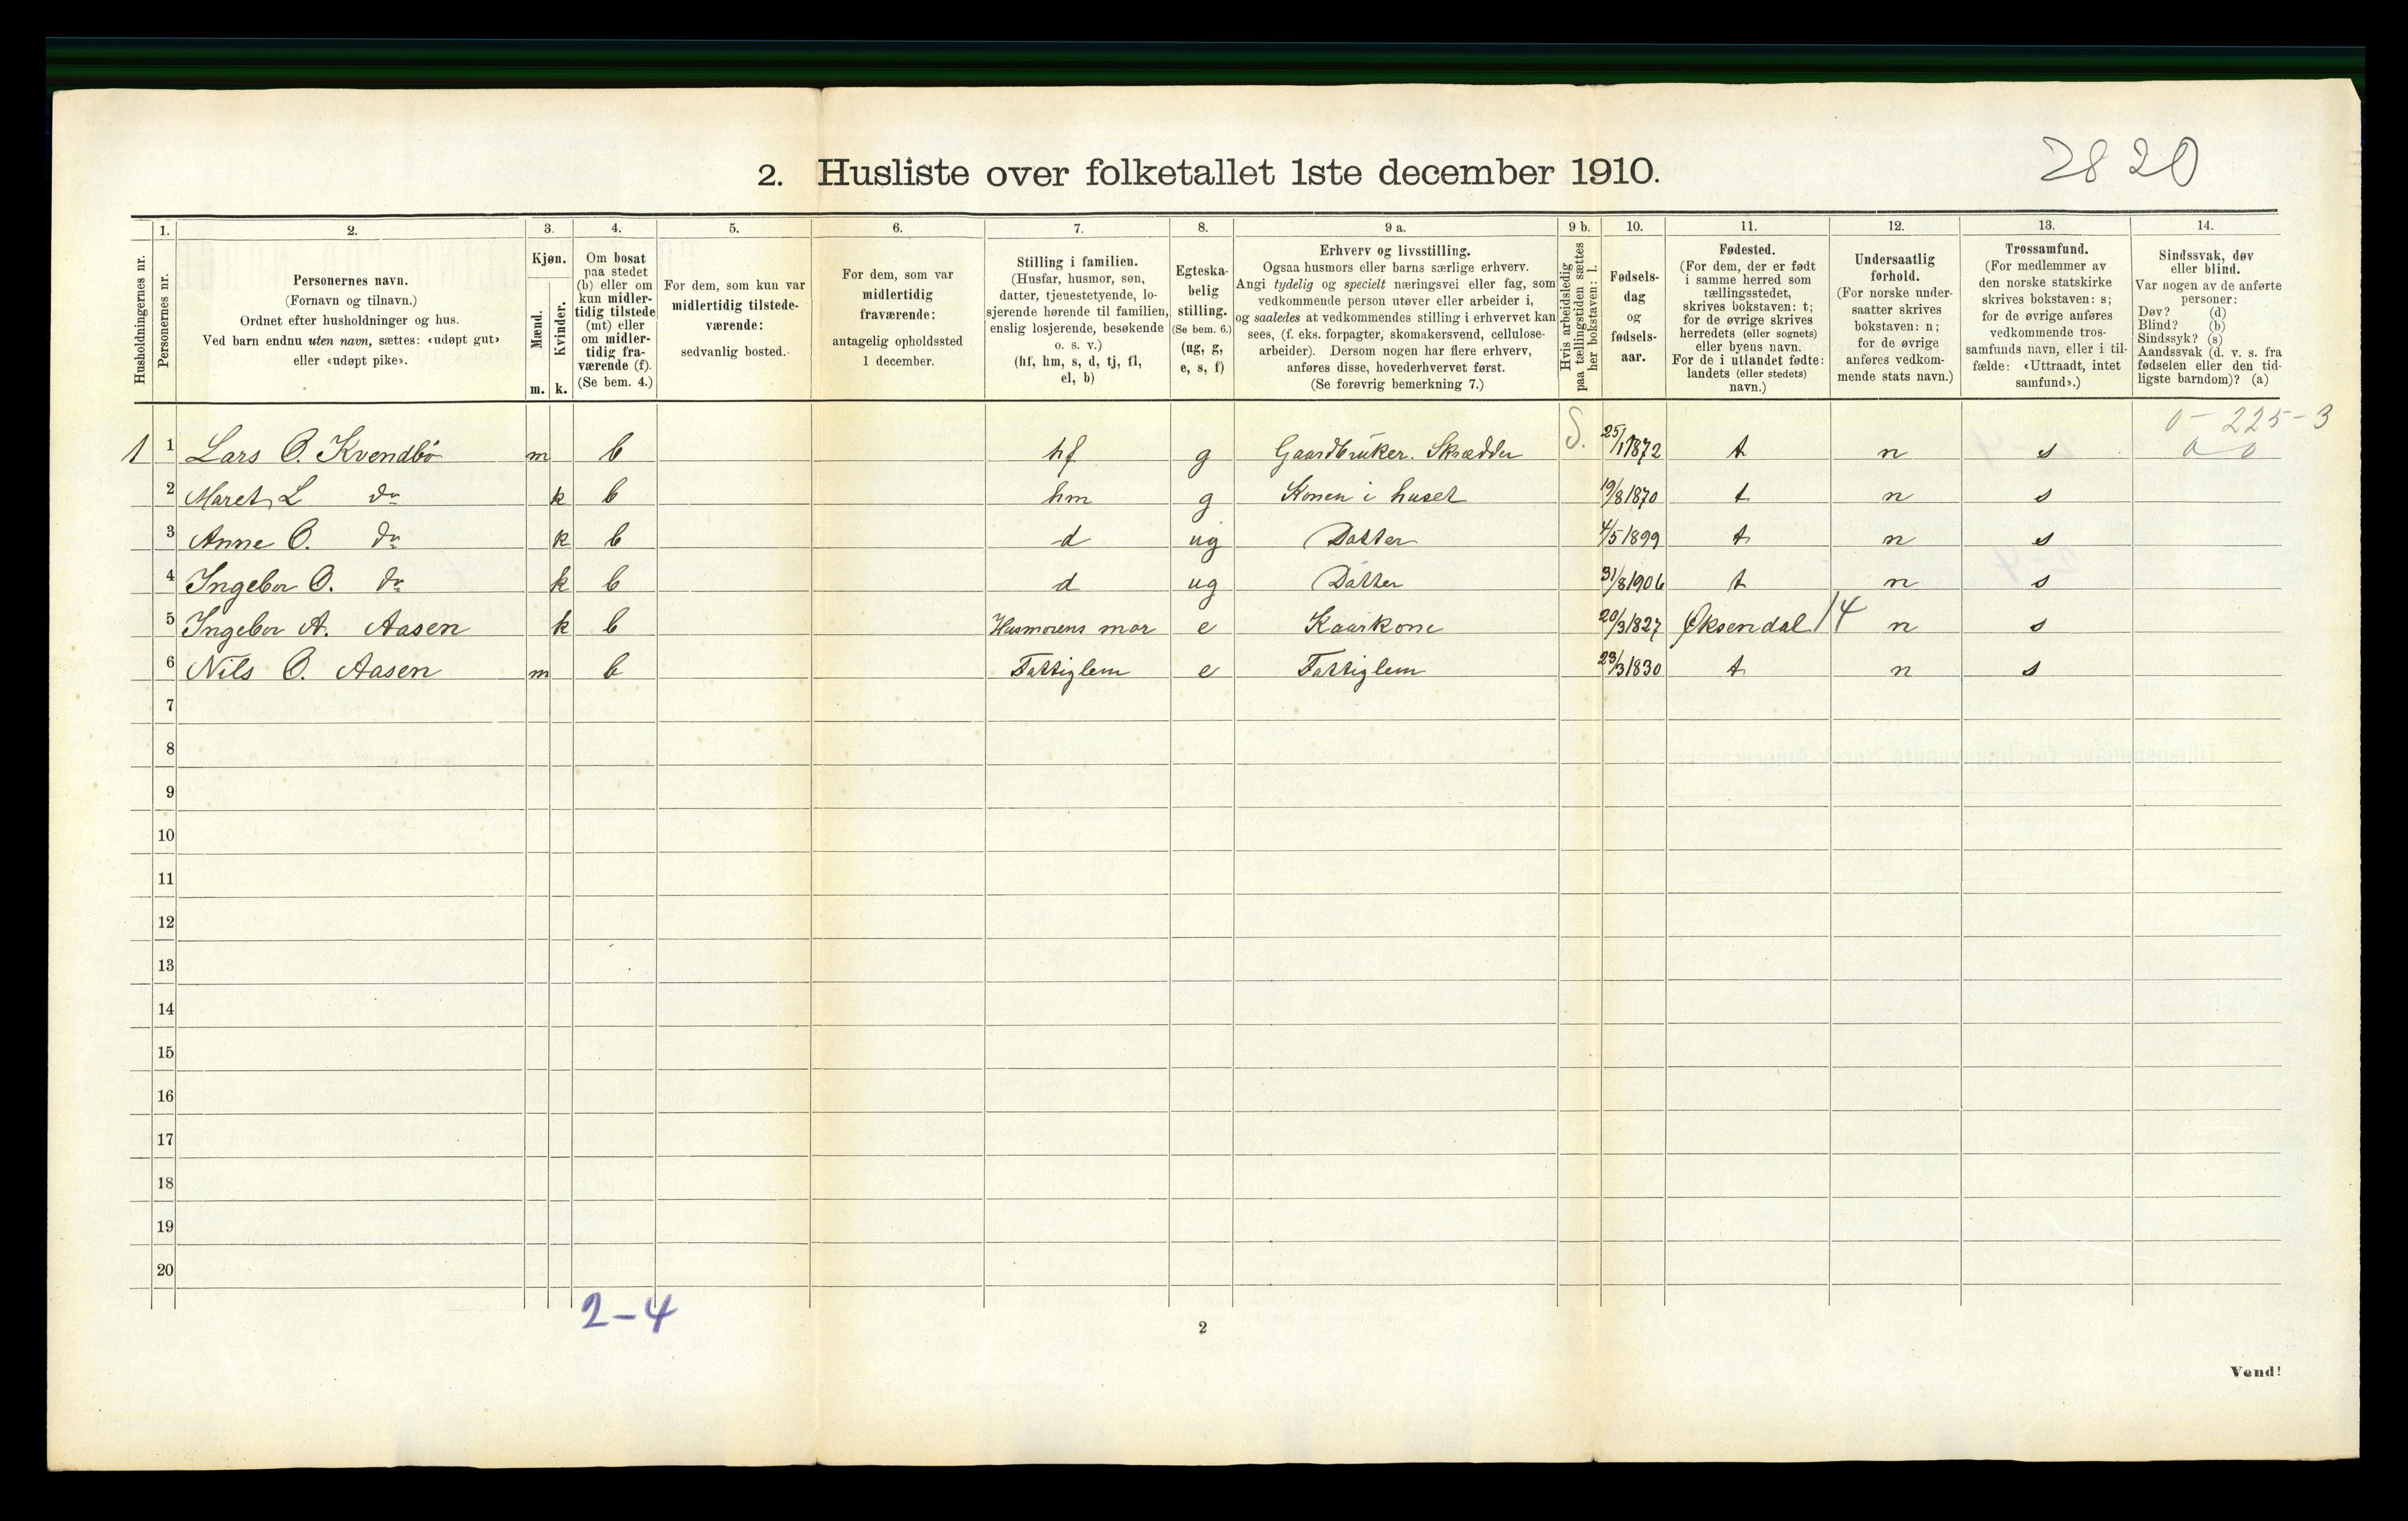 2820
2. Husliste over folketallet 1ste december 1910.
Husholdningernes nr.
1. Personernes nr.
2. Personernes navn.
(Fornavn og tilnavn.)
Ordnet efter husholdninger og hus.
Ved barn endnu uten navn, sættes: «udøpt gut»
eller «udøpt pike».
3. Kjøn.
Mænd. m.
Kvinder. k.
4. Om bosat
paa stedet
(b) eller om
kun midler-
tidig tilstede
(mt) eller
om midler-
tidig fra-
værende (f).
(Se bem. 4.)
5. For dem, som kun var
midlertidig tilstede-
værende:
sedvanlig bosted.
6. For dem, som var
midlertidig
fraværende:
antagelig opholdssted
1 december.
7. Stilling i familien.
(Husfar, husmor, søn,
datter, tjenestetyende, lo-
sjerende hørende til familien,
enslig losjerende, besøkende
o. s. v.)
(hf, hm, s, d, tj, fl,
el, b)
8. Egteska-
belig
stilling.
(Se bem. 6.)
(ug, g,
e, s, f)
9 a. Erhverv og livsstilling.
Ogsaa husmors eller barns særlige erhverv.
Angi tydelig og specielt næringsvei eller fag, som
vedkommende person utøver eller arbeider i,
og saaledes at vedkommendes stilling i erhvervet kan
sees, (f. eks. forpagter, skomakersvend, cellulose-
arbeider). Dersom nogen har flere erhverv,
anføres disse, hovederhvervet først.
(Se forøvrig bemerkning 7.)
9 b. Hvis arbeidsledig
paa tællingstiden sættes
her bokstaven: l.
10. Fødsels-
dag
og
fødsels-
aar.
11. Fødested.
(For dem, der er født
i samme herred som
tællingsstedet,
skrives bokstaven: t;
for de øvrige skrives
herredets (eller sognets)
eller byens navn.
For de i utlandet fødte:
landets (eller stedets)
navn.)
12. Undersaatlig
forhold.
(For norske under-
saatter skrives
bokstaven: n;
for de øvrige
anføres vedkom-
mende stats navn.)
13. Trossamfund.
(For medlemmer av
den norske statskirke
skrives bokstaven: s;
for de øvrige anføres
vedkommende tros-
samfunds navn, eller i til-
fælde: «Uttraadt, intet
samfund».)
14. Sindssvak, døv
eller blind.
Var nogen av de anførte
personer:
Døv? (d)
Blind? (b)
Sindssyk? (s)
Aandssvak (d. v. s. fra
fødselen eller den tid-
ligste barndom)? (a)
0 - 225 - 3
1 1 Lars O. Kvendbø m b hf g Gaardbruker. Skrædder S. 25/1 1872 t n s 0 0
2 Maret L do k b hm g Konen i huset 19/8 1870 t n s
3 Anne O. do k b d ug Datter 4/5 1899 t n s
4 Ingebor O. do k b d ug Datter 31/8 1906 t n s
5 Ingebor A. Aasen k b Husmorens mor e Kaarkone 20/3 1827 Øksendal 14 n s
6 Nils O. Aasen m b Fattiglem e Fattiglem 23/3 1830 t n s
7
8
9
10
11
12
13
14
15
16
17
18
19
20
2-4
2
Vend!